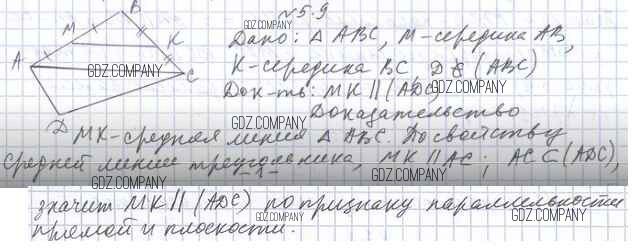 №5.9
Дано: Δ ABC, M-середина AB,
K-середина BC, D∉(ABC)
Док-ть: MK || (ADC)
Доказательство
MK-средняя линия Δ ABC. По свойству
средней линии треугольника, MK || AC; AC⊂(ADC),
значит MK || (ADC) по признаку параллельности
прямой и плоскости.
B
M
K
A
C
D
GDZ.COMPANY
GDZ.COMPANY
GDZ.COMPANY
GDZ.COMPANY
GDZ.COMPANY
GDZ.COMPANY
GDZ.COMPANY
GDZ.COMPANY
GDZ.COMPANY
GDZ.COMPANY